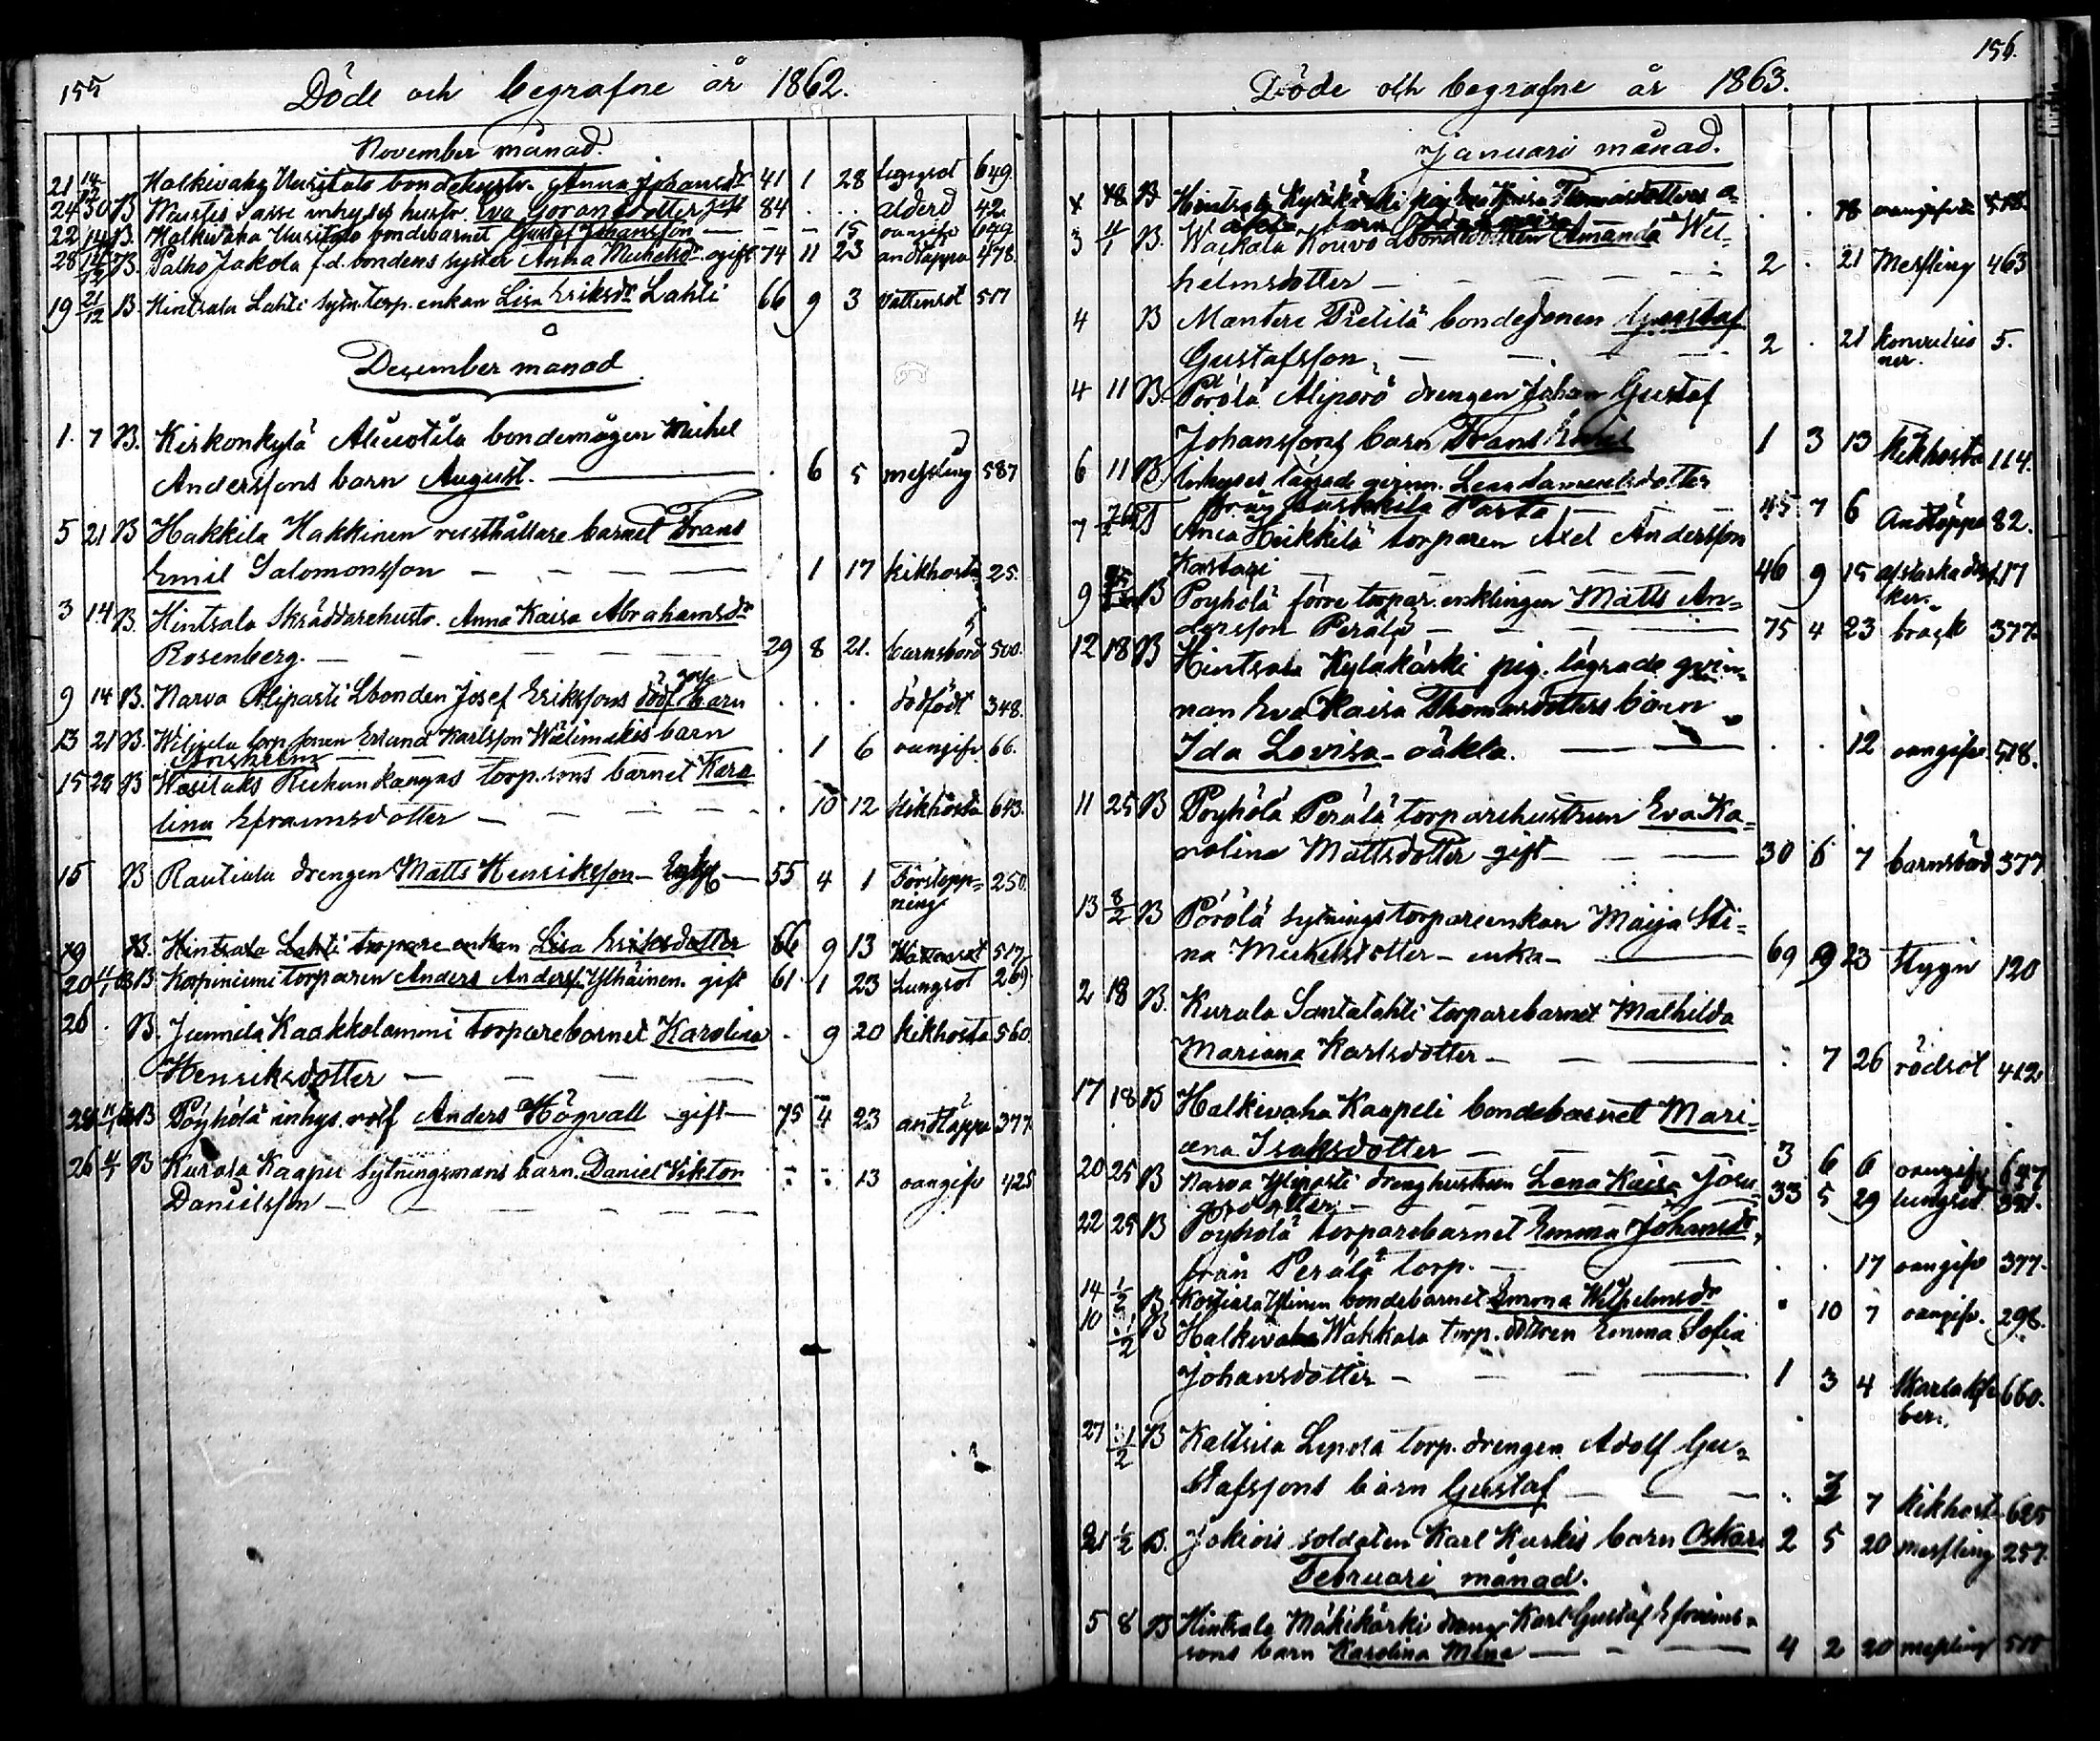 155
Döde och begrafne år 1862.
November månad.
21 14/12 Halkivaha Uusitalo bondehustr. Anna Johansdr 41 1 28 649.
24 30 B Sasse inhyses hustr. Eva Göransdotter gift 84 . . ålderd 42.
22 14 B. Halkivaha Uusitalo bondebarnet Gustaf Johansson — — 15 oangifv 649
28 14/12 B. Palho Jakola f.d. bondens syster Anna Michelsdr ogift 74 11 23 andtäppa 478.
19 21/12 B Hintsala Lahti sytn. torp. enkan Lisa Eriksdr Lahti 66 9 3 Vattensot 517
December månad
1. 7 B. Kirkonkylä Aliuotila bondemågen Michel
Anderssons barn August. — . 6 5 messling 587
5 21 B Hakkila Hakkinen rusthållare barnet Frans
Emil Salomonsson — — — — . 1 17 kikhosta 25.
3 14 B. Hintsala Skräddarehustr. Anna Kaisa Abrahamsdr
Rosenberg. — — — — 29 8 21. barnsbörd 500.
9 14 B. Narva Aliparti Lbonden Josef Erikssons dödf. barn . . . dödfödt 348.
13 21 B. torp. sonen Erland Karlsson barn
— — — . 1 6 oangifv. 66.
15 28 B torp. sons barnet Karo
lina Efraimsdotter — — — — . 10 12 kikhosta 643.
15 B Rautiala drengen Matts Henriksson — — 55 4 1 Förstopp=
ning 250.
19 B. Hintsala Lahti torpare enkan Lisa Eriksdotter 66 9 13 Vattensot 517
20 B Korpiniemi torparen Anders Anderss. gift 61 1 23 Lungsot 269
26 . B. Junnila Kaakkolammi torparebarnet Karolina . 9 20 kikhosta 560.
Henriksdotter — — — —
B Pöyhölä inhys. Anders Högvall — gift — 75 4 23 andtäppa 377
26 B Kurala Kaapu sytningsmans barn Daniel Viktor . . 13 oangifv 425
Danielsson — — — — —
156.
Döde och begrafne år 1863.
Januari månad.
18 B Hintsala Kyläkärki Kaisa Thomasdotters o-
äkta barn Ida Lovisa . . 18 oangifvet 518.
3 B. Kouvo Lbondedottren Amanda Wil-
helmsdotter — — — — 2 . 21 Messling 463
4 B Mantere Pietilä bondesonen Gustaf
Gustafsson, — — — — 2 . 21 konvulsio
ner. 5.
4 11 B. Pörölä drengen Johan Gustaf
Johanssons barn Frans Emil 1 3 13 Kikhosta 114.
6 11 B. Inhyses lägrade qvinn. Lena Samuelsdotter
från Parta — — 45 7 6 Andtäppa 82.
7 Heikkilä torparen Axel Andersson
Kastari — — — — 46 9 15 117
9 B Pöyhölä förre torpar. enklingen Matts An=
dersson Perälä — — — — 75 4 23 bråck 377
12 18 B Hintsala Kyläkärki pig. lägrade qvin=
nan Eva Kaisa Thomasdotters barn
Ida Lovisa – oäkta. — — . . 12 oangifv. 518.
11 25 B Pöyhölä Perälä torparehustrun Eva Ka=
rolina Mattsdotter gift — — — 30 6 7 barnsbörd 377
13 8/2 B Pörölä sytningstorpareenkan Maija Sti=
na Michelsdotter — enka — — 69 9 23 Stygn 120
2 18 B. Kurala Santalahti torparebarnet Mathilda
Mariana Karlsdotter — — — . 7 26 rödsot 412
17 18 B Halkivaha Kaapeli bondebarnet Mari=
ana Isaksdotter — — — 3 6 6 oangifv 647
20 25 B Narva Yliparti drenghustrun Lena Kaisa Josu=
dotter — — — — 33 5 29 lungsot
22 25 B Pöyhölä torparebarnet Emma Johansdr,
från Perälä torp. — — . . 17 oangifv 377.
14 1/2 B. bondebarnet Emma Wilhelmsdr . 10 7 oangifv. 298.
10 1/2 B Halkivaha Wakkala torp. dottren Emma Sofia
Johansdotter — — — — 1 3 4 660.
27 1/2 B torp. drengen Adolf Gu=
stafssons barn Gustaf — — — . 3 7 kikhosta 625
21 1/2 B. Jokiois soldaten Karl Kurkis barn Oskar 2 5 20 messling 257.
Februari månad.
5 8 B Hintsala Mäkikärki dreng Karl Gustaf Efraims=
sons barn Karolina Mina — — — 4 2 20 messling